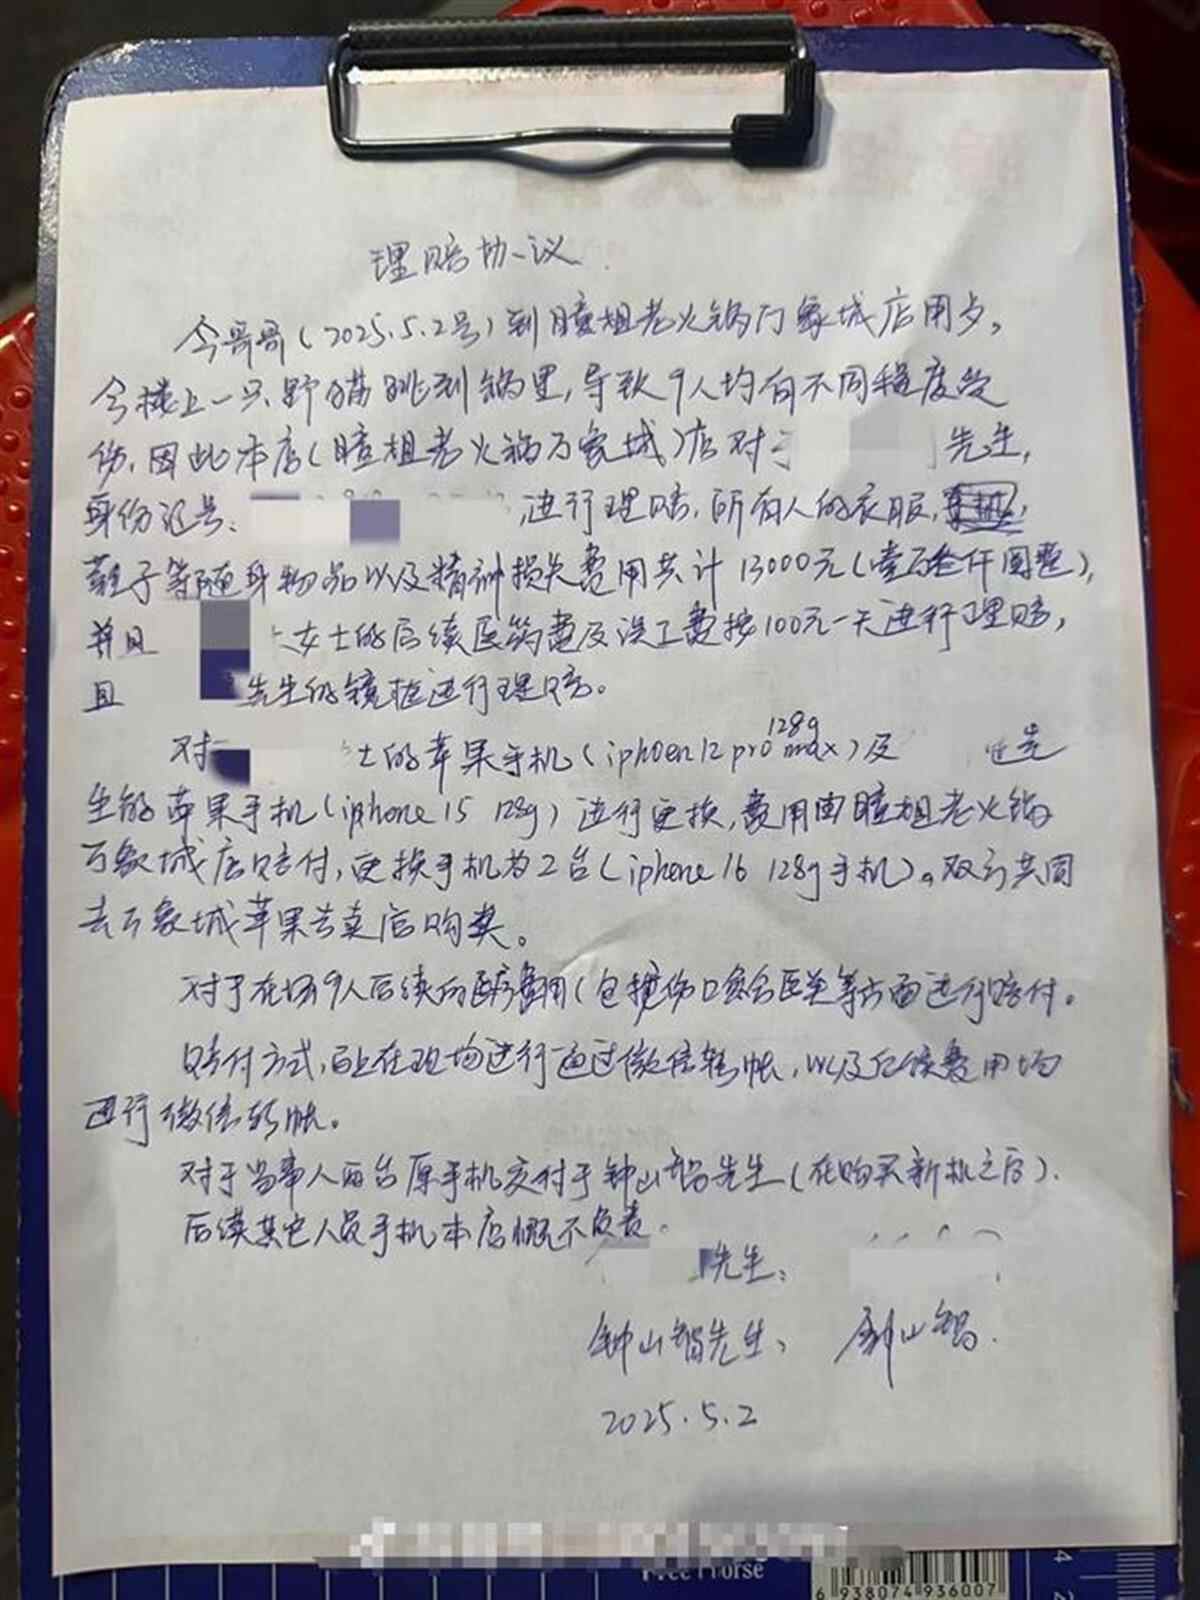 理赔协议
今哥哥(2025.5.2号)到瞳姐老火锅万象城店用夕,
今楼上一只野猫跳到锅里,导致9人均有不同程度受
伤,因此本店(瞳姐老火锅万象城)店对于 先生,
身份证号: ,进行理赔,所有人的衣服,
鞋子等随身物品以及精神损失费用共计13000元(壹万叁仟圆整),
并且 女士的后续医药费及误工费按100元一天进行理赔,
且 先生的镜框进行理赔。
对 士的苹果手机(iphoen12 pro max 128g)及 先
生的苹果手机(iphone 15 128g)进行更换,费用由瞳姐老火锅
万象城店赔付,更换手机为2台(iphone 16 128g手机)。双方共同
去万象城苹果专卖店购买。
对于在场9人后续的医疗费用(包括伤口愈合医美等方面进行赔付。
赔付方式,马上在现场进行通过微信转帐,以及后续费用均
进行微信转帐。
对于当事人两台原手机交付于钟山智先生(在购买新机之后).
后续其它人员手机本店概不负责。
先生:
钟山智先生: 钟山智.
2025.5.2
Free Horse
6 938074 936007